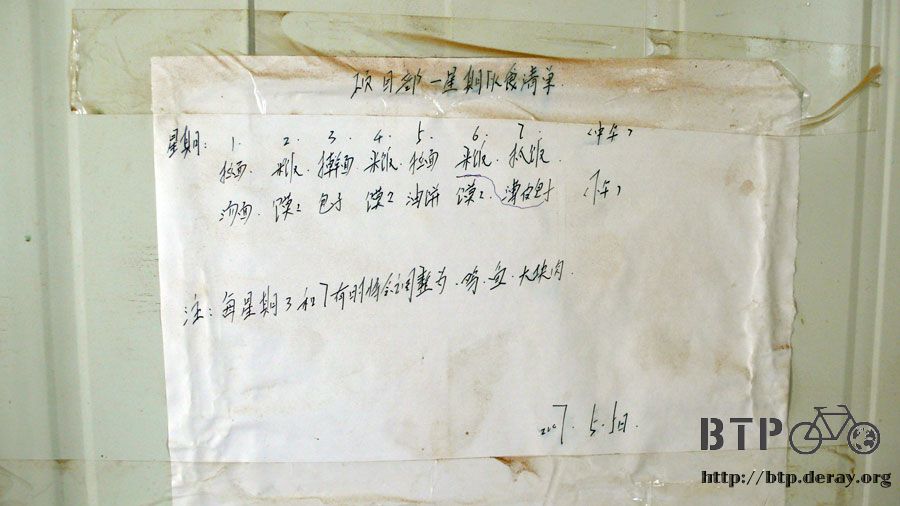 项目部一星期伙食清单.
星期: 1. 2. 3. 4. 5. 6. 7. (中午)
拉面. 米饭 拌面 米饭 拉面 米饭. 抓饭.
汤面. 馍2 包子 馍2 油饼 馍2. 薄皮包子 (下午)
注: 每星期3和7有时候会调整为.鸡.鱼.大块肉.
2007.5.5日.
BTP
http://btp.deray.org